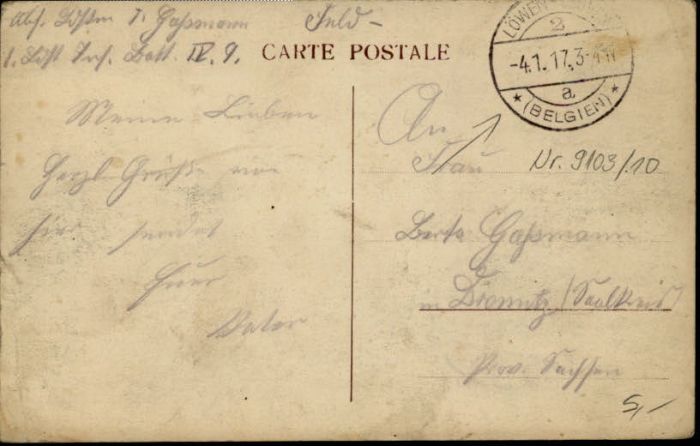 Abs. Gaßmann Feld-
1. Inf. Batt. IV. 9.
CARTE POSTALE
LÖWEN
2
-4.1.17.3-4N
a
★ (BELGIEN) ★
Meine Lieben
Herzl Grüße von
hier sendet
Euer
Vater
An
Frau
Nr. 9103/10
Berta Gaßmann
in /Saalkreis
Prov. Sachsen
5,-